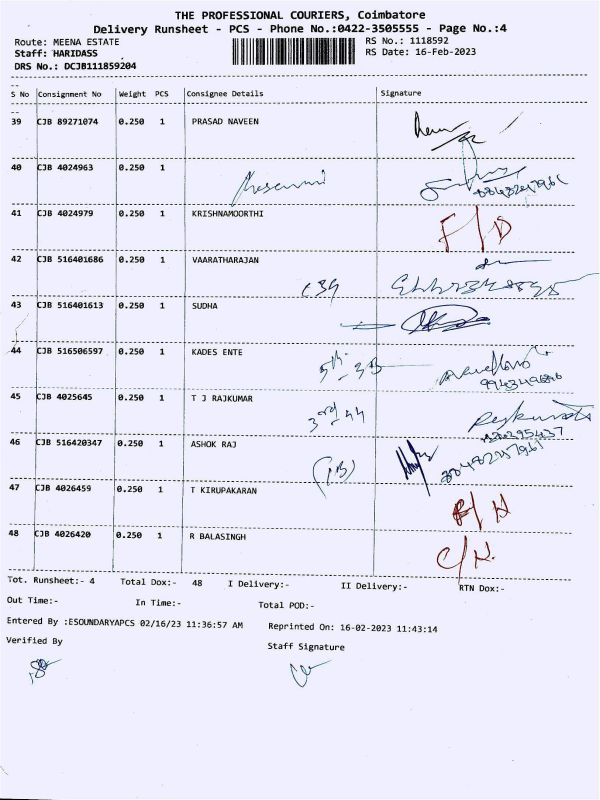 THE PROFESSIONAL COURIERS, Coimbatore
Delivery Runsheet - PCS - Phone No.:0422-3505555 - Page No.:4
Route: MEENA ESTATE
RS No.: 1118592
Staff: HARIDASS
RS Date: 16-Feb-2023
DRS No.: DCJB111859204
S No Consignment No Weight PCS Consignee Details Signature
39 CJB 89271074 0.250 1 PRASAD NAVEEN
40 CJB 4024963 0.250 1
41 CJB 4024979 0.250 1 KRISHNAMOORTHI F/D
42 CJB 516401686 0.250 1 VAARATHARAJAN
43 CJB 516401613 0.250 1 SUDHA
44 CJB 516506597 0.250 1 KADES ENTE
45 CJB 4025645 0.250 1 T J RAJKUMAR 3rd - 44
46 CJB 516420347 0.250 1 ASHOK RAJ
47 CJB 4026459 0.250 1 T KIRUPAKARAN
48 CJB 4026420 0.250 1 R BALASINGH
Tot. Runsheet:- 4 Total Dox:- 48 I Delivery:- II Delivery:- RTN Dox:-
Out Time:- In Time:- Total POD:-
Entered By :ESOUNDARYAPCS 02/16/23 11:36:57 AM Reprinted On: 16-02-2023 11:43:14
Verified By Staff Signature